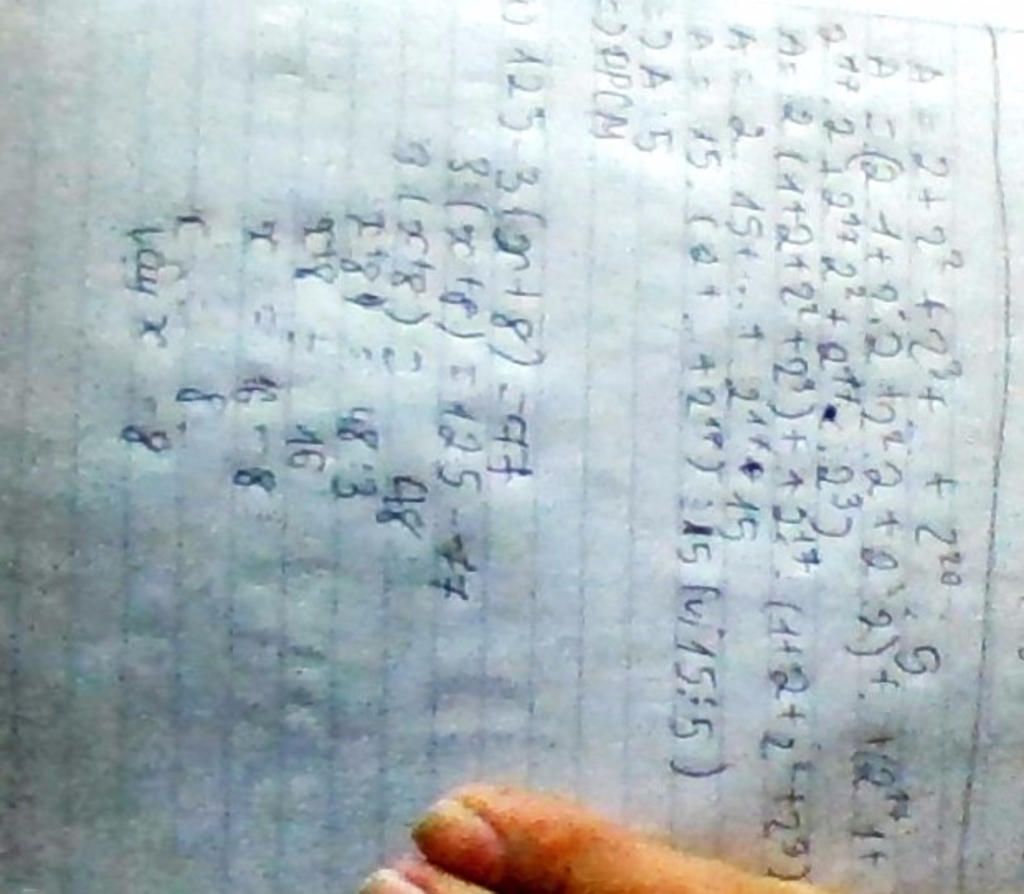 A = 2 + 2² + 2³ + + 2²⁰ ⋮ 5
A = (2.1 + 2.2 + 2.2² + 2.2³) + (2¹⁷.1 +
2¹⁷.2 + 2¹⁷.2² + 2¹⁷.2³)
A = 2 (1+2+2²+2³) + + 2¹⁷. (1+2+2²+2³)
A = 2 15 + ... + 2¹⁷.15
A = 15. ( + .. + 2¹⁷) ⋮ 15 (vì 15 ⋮ 5)
=> A ⋮ 5
=> ĐPCM
125 - 3(x+8) = 77
3(x+8) = 125 - 77
3(x+8) = 48
x+8 = 48:3
x+8 = 16
x = 16 - 8
x = 8
Vậy x = 8